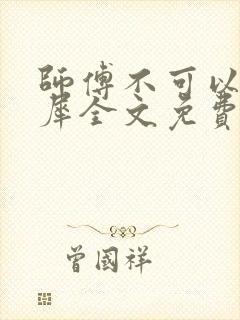 師傅不可以
犀全文免費
曾國祥